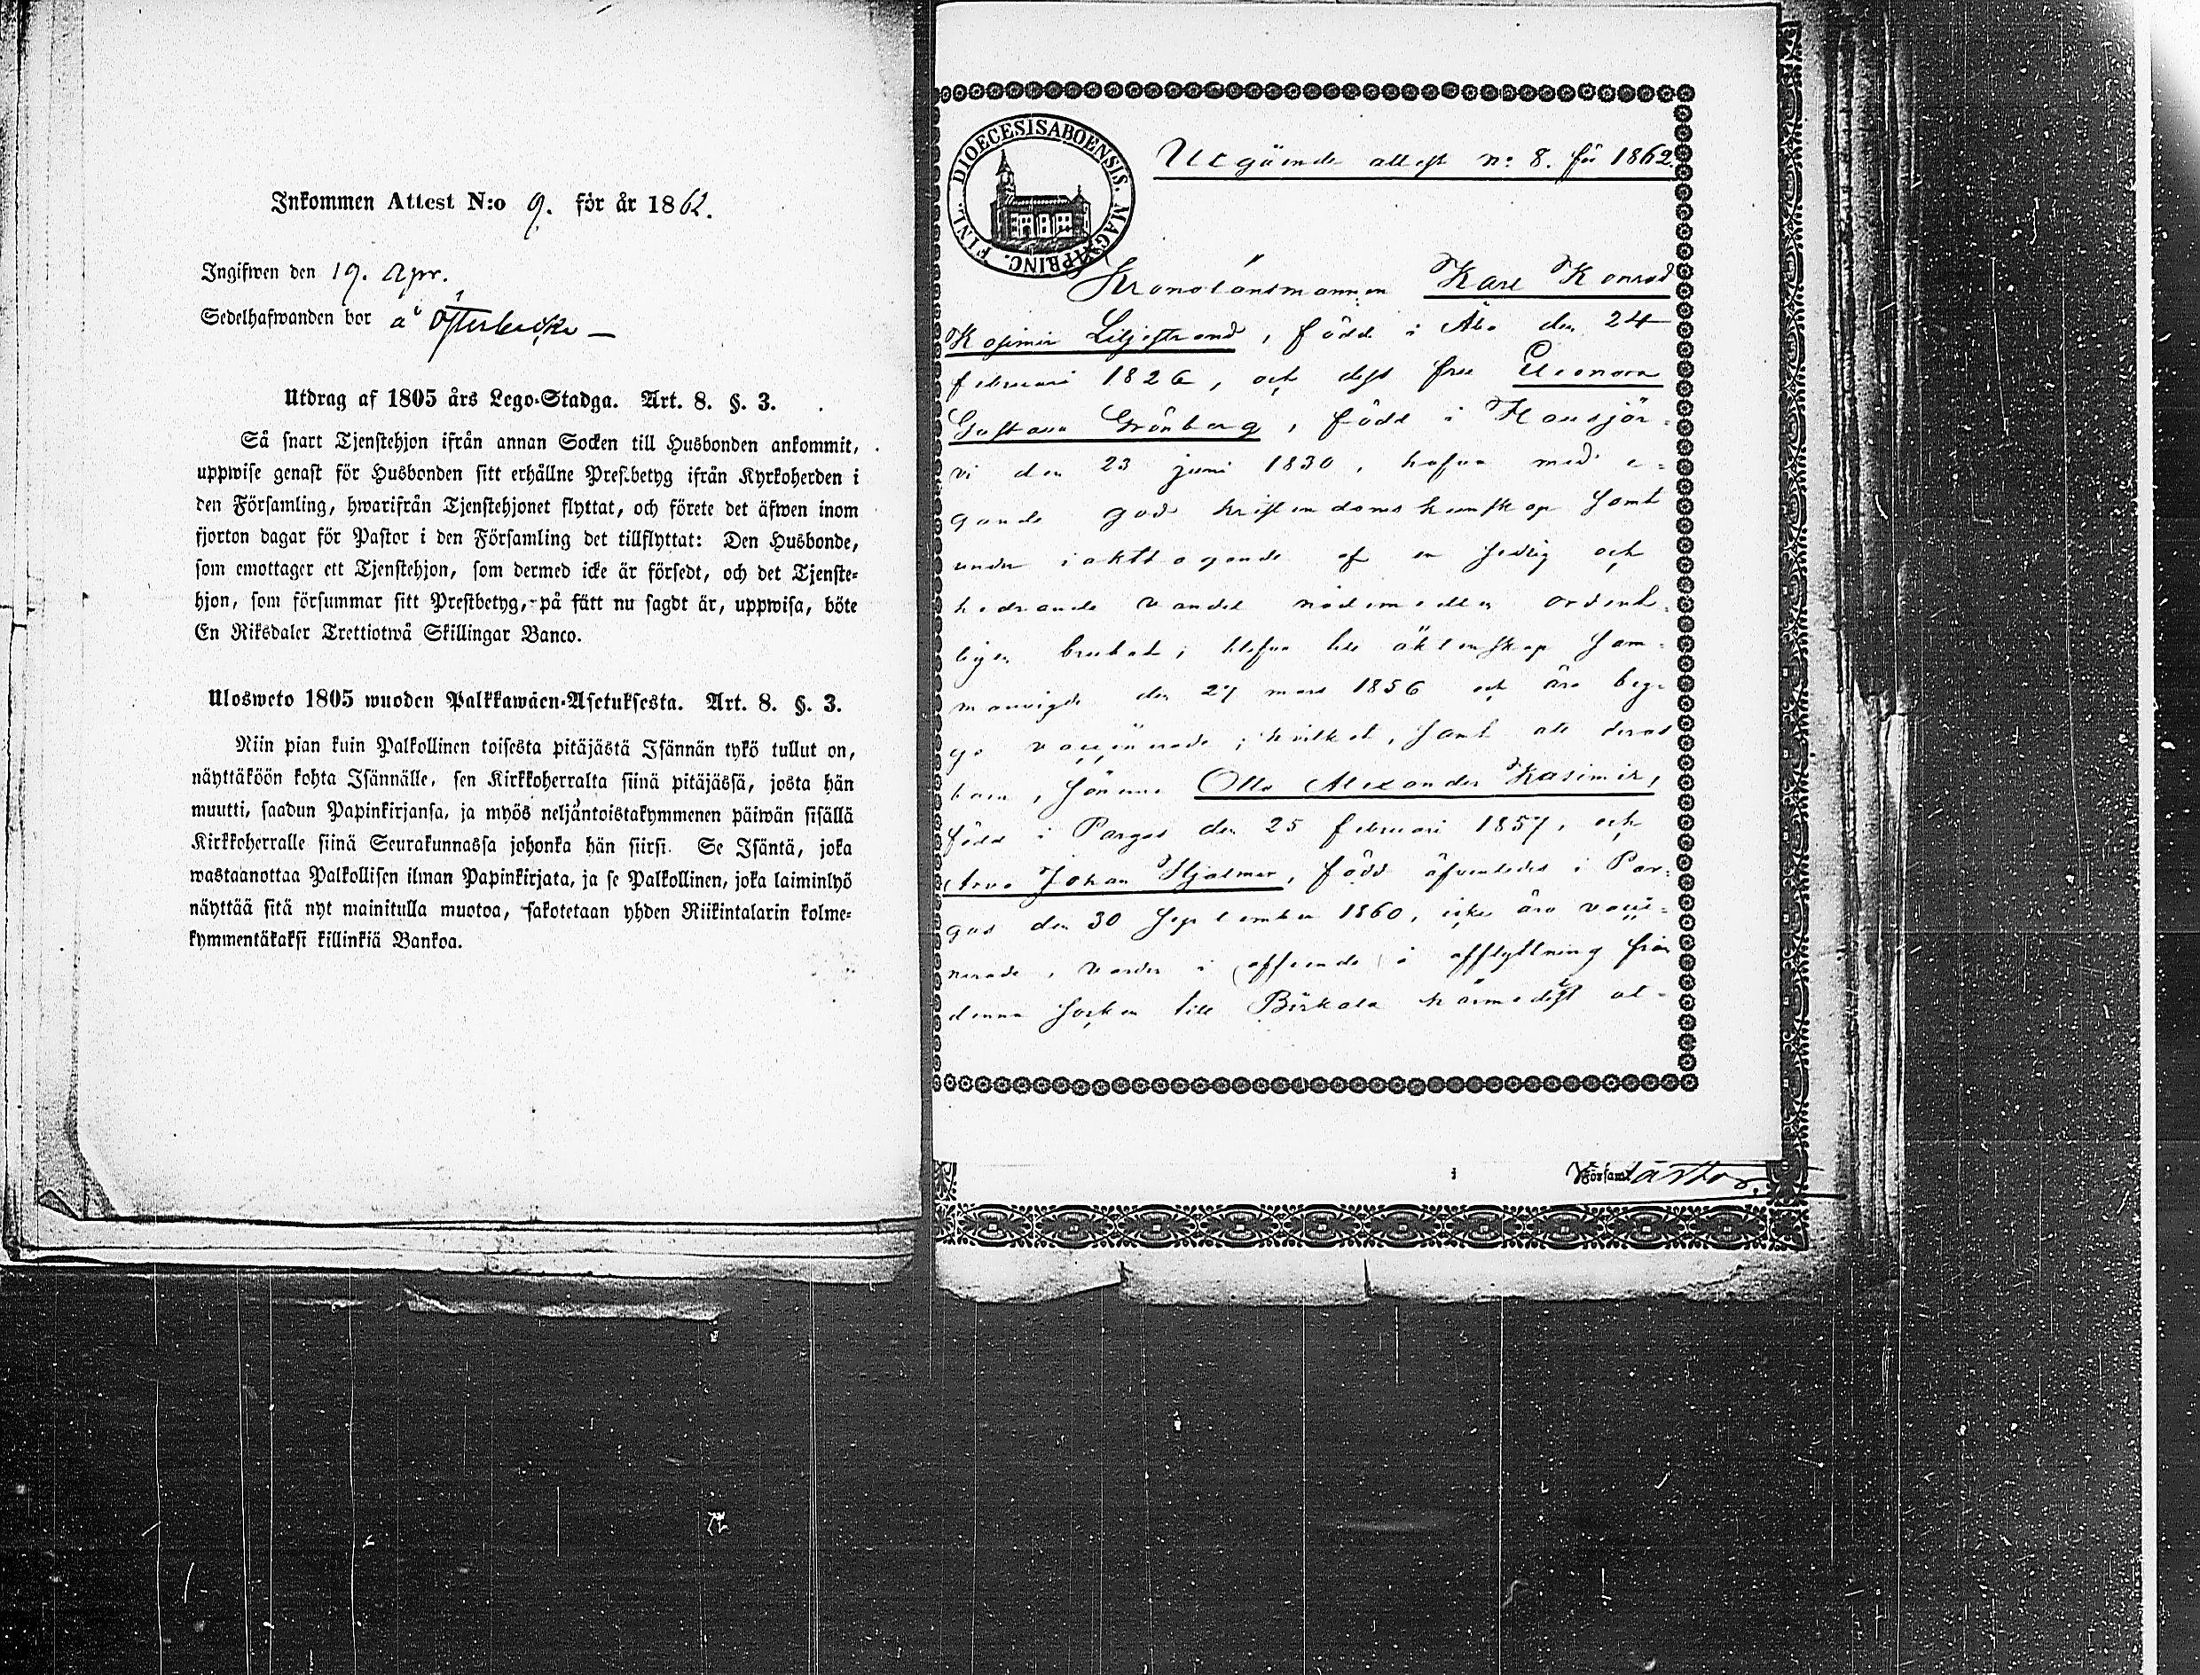 Inkommen Attest N:o 9. för år 1862.
Ingifwen den 19. Apr.
Sedelhafwanden bor å Österbacka
Utdrag af 1805 års Lego-Stadga. Art. 8. §. 3.
Så snart Tjenstehjon ifrån annan Socken till Husbonden ankommit,
uppwise genast för Husbonden sitt erhållne Prestbetyg ifrån Kyrkoherden i
den Församling, hwarifrån Tjenstehjonet flyttat, och förete det äfwen inom
fjorton dagar för Pastor i den Församling det tillflyttat: Den Husbonde,
som emottager ett Tjenstehjon, som dermed icke är försedt, och det Tjenste-
hjon, som försummar sitt Prestbetyg, på sätt nu sagdt är, uppwisa, böte
En Riksdaler Trettiotwå Skillingar Banco.
Ulosweto 1805 wuoden Palkkawäen-Asetuksesta. Art. 8. §. 3.
Niin pian kuin Palkollinen toisesta pitäjästä Isännän tykö tullut on,
näyttäköön kohta Isännälle, sen Kirkkoherralta siinä pitäjässä, josta hän
muutti, saadun Papinkirjansa, ja myös neljäntoistakymmenen päiwän sisällä
Kirkkoherralle siinä Seurakunnassa johonka hän siirsi. Se Isäntä, joka
wastaanottaa Palkollisen ilman Papinkirjata, ja se Palkollinen, joka laiminlyö
näyttää sitä nyt mainitulla muotoa, sakotetaan yhden Riikintalarin kolme-
kymmentäkaksi killinkiä Bankoa.
DIOECESIS ABOENSIS. MAG. PRINC. FINL.
Utgående attest no 8. för 1862.
Kronolänsmannen Karl Konrad
Kasimir Liljestrand, född i Åbo den 24
februari 1826, och dess fru Eleonora
Gustava Grönberg, född i Hausjär-
vi den 23 juni 1830, hafva med e-
gande god kristendomskunskap samt
under iakttagande af en sedlig och
hedrande vandel nådemedlen ordent-
ligen brukat; blefvo till äktenskap sam-
manvigde den 27 mars 1856 och äro beg-
ge vaccinerade; hvilket, samt att deras
barn, sönerne Otto Alexander Kasimir,
född i Pargas den 25 februari 1857, och
Arvo Johan Hjalmar, född äfvenledes i Par-
gas den 30 september 1860, icke äro vacci-
nerade, varder i afseende å afflyttning från
denna socken till Birkala härmedelst at-
Församl